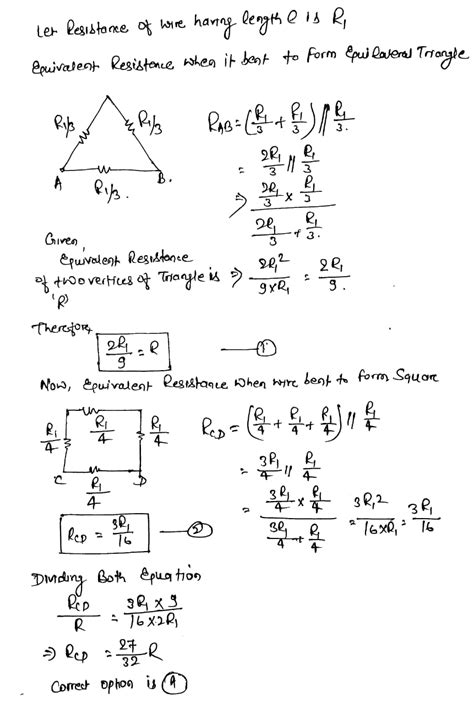 Let Resistance of wire having length l is R₁
Equivalent Resistance when it bent to form Equilateral Triangle
R₁/3 R₁/3
A R₁/3. B.
R_AB = (R₁/3 + R₁/3) // R₁/3.
= 2R₁/3 // R₁/3
⇒ (2R₁/3 × R₁/3) / (2R₁/3 + R₁/3.)
Given,
Equivalent Resistance
of two vertices of Triangle is ⇒ 2R₁²/9×R₁ = 2R₁/9.
'R'
Therefore,
2R₁/9 = R —— ①
Now, Equivalent Resistance when wire bent to form Square
R₁/4 R₁/4 R₁/4
C D
R₁/4
R_CD = (R₁/4 + R₁/4 + R₁/4) // R₁/4
= 3R₁/4 // R₁/4
= (3R₁/4 × R₁/4) / (3R₁/4 + R₁/4) = 3R₁²/16×R₁ = 3R₁/16
R_CD = 3R₁/16 —— ②
Dividing Both Equation
R_CD/R = 3R₁ × 9/16×2R₁
⇒ R_CD = 27/32 R
Correct option is Ⓐ